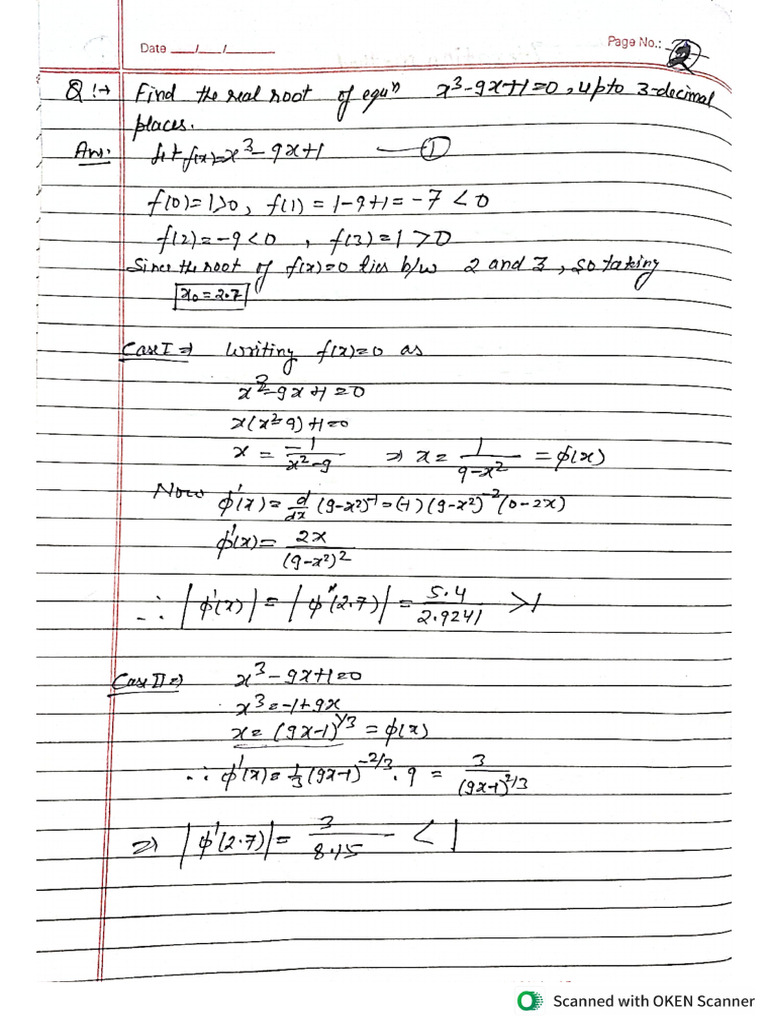 Date ___/___/______
Page No.: 2
Q!→ Find the real root of equⁿ x³-9x+1=0, upto 3-decimal
places.
Ans: let f(x)=x³-9x+1 —①
f(0)=1>0, f(1)=1-9+1=-7<0
f(2)=-9<0, f(3)=1>0
Since the root of f(x)=0 lies b/w 2 and 3, so taking
x₀=2.7
Case I⇒ Writing f(x)=0 as
x³-9x+1=0
x(x²-9)+1=0
x = -1/(x²-9) ⇒ x = 1/(9-x²) = φ(x)
Now φ'(x) = d/dx (9-x²)⁻¹ = (-1)(9-x²)⁻²(0-2x)
φ'(x) = 2x/(9-x²)²
∴ |φ'(x)| = |φ'(2.7)| = 5.4/2.9241 >1
Case II⇒ x³-9x+1=0
x³=-1+9x
x=(9x-1)^1/3 = φ(x)
∴ φ'(x) = 1/3 (9x-1)^-2/3 . 9 = 3/(9x-1)^2/3
⇒ |φ'(2.7)| = 3/8.15 < 1
Scanned with OKEN Scanner